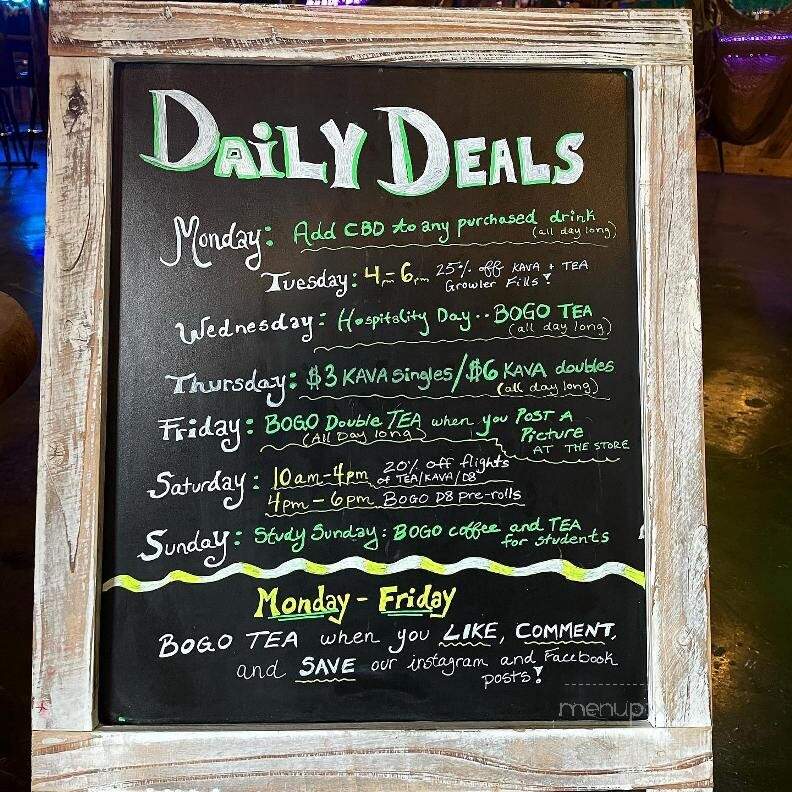 DAiLY DEALS
Monday: Add CBD to any purchased drink
(all day long)
Tuesday: 4pm-6pm 25% off KAVA + TEA
Growler Fills!
Wednesday: Hospitality Day.. BOGO TEA
(all day long)
Thursday: $3 KAVA Singles/$6 KAVA doubles
(all day long)
Friday: BOGO Double TEA when you POST A
(All Day long) Picture
AT THE STORE
Saturday: 10am-4pm 20% off flights
of TEA/KAVA/D8
4pm-6pm BOGO D8 Pre-rolls
Sunday: Study Sunday: BOGO coffee and TEA
for students
Monday - Friday
BOGO TEA when you LIKE, COMMENT,
and SAVE our instagram and Facebook
posts!
menup